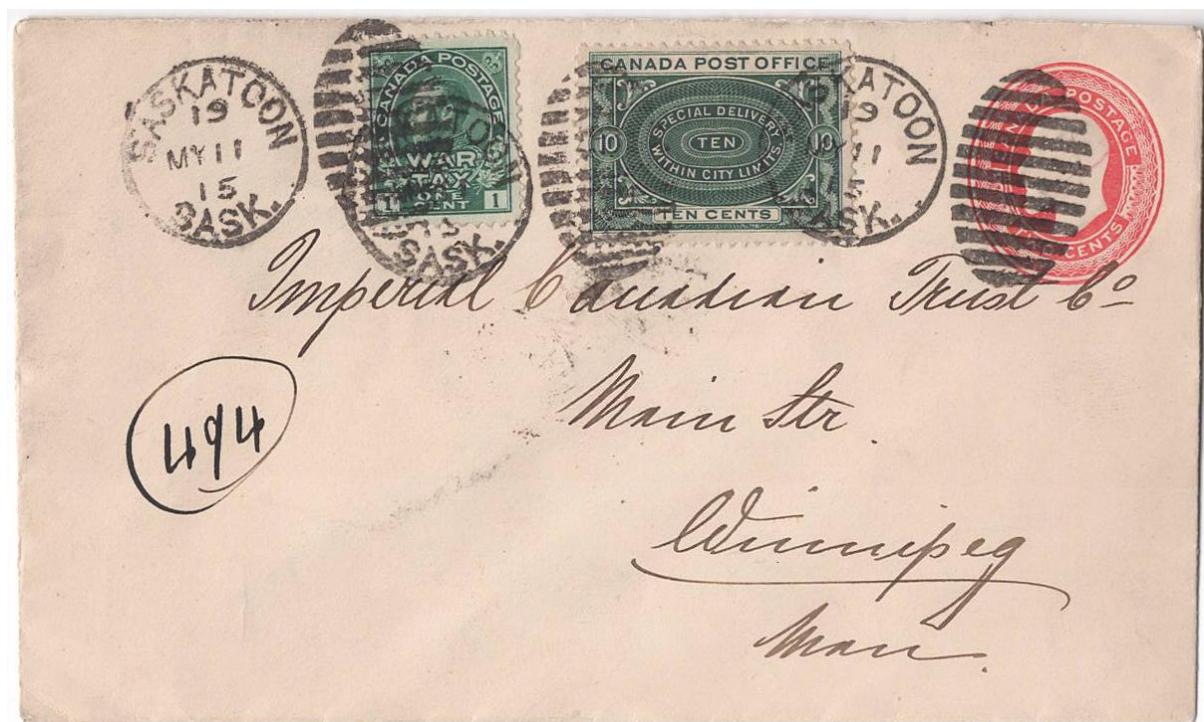 SASKATOON
19
MY 11
15
SASK.
CANADA POSTAGE
WAR
TAX
ONE
CENT
1 1
SASKATOON
15
SASK.
CANADA POST OFFICE
SPECIAL DELIVERY
10 TEN 10
WITHIN CITY LIMITS
TEN CENTS
SKATOON
19
11
15
SASK.
POSTAGE
CENTS
Imperial Canadian Trust Co
Main Str.
494
Winnipeg
Man.